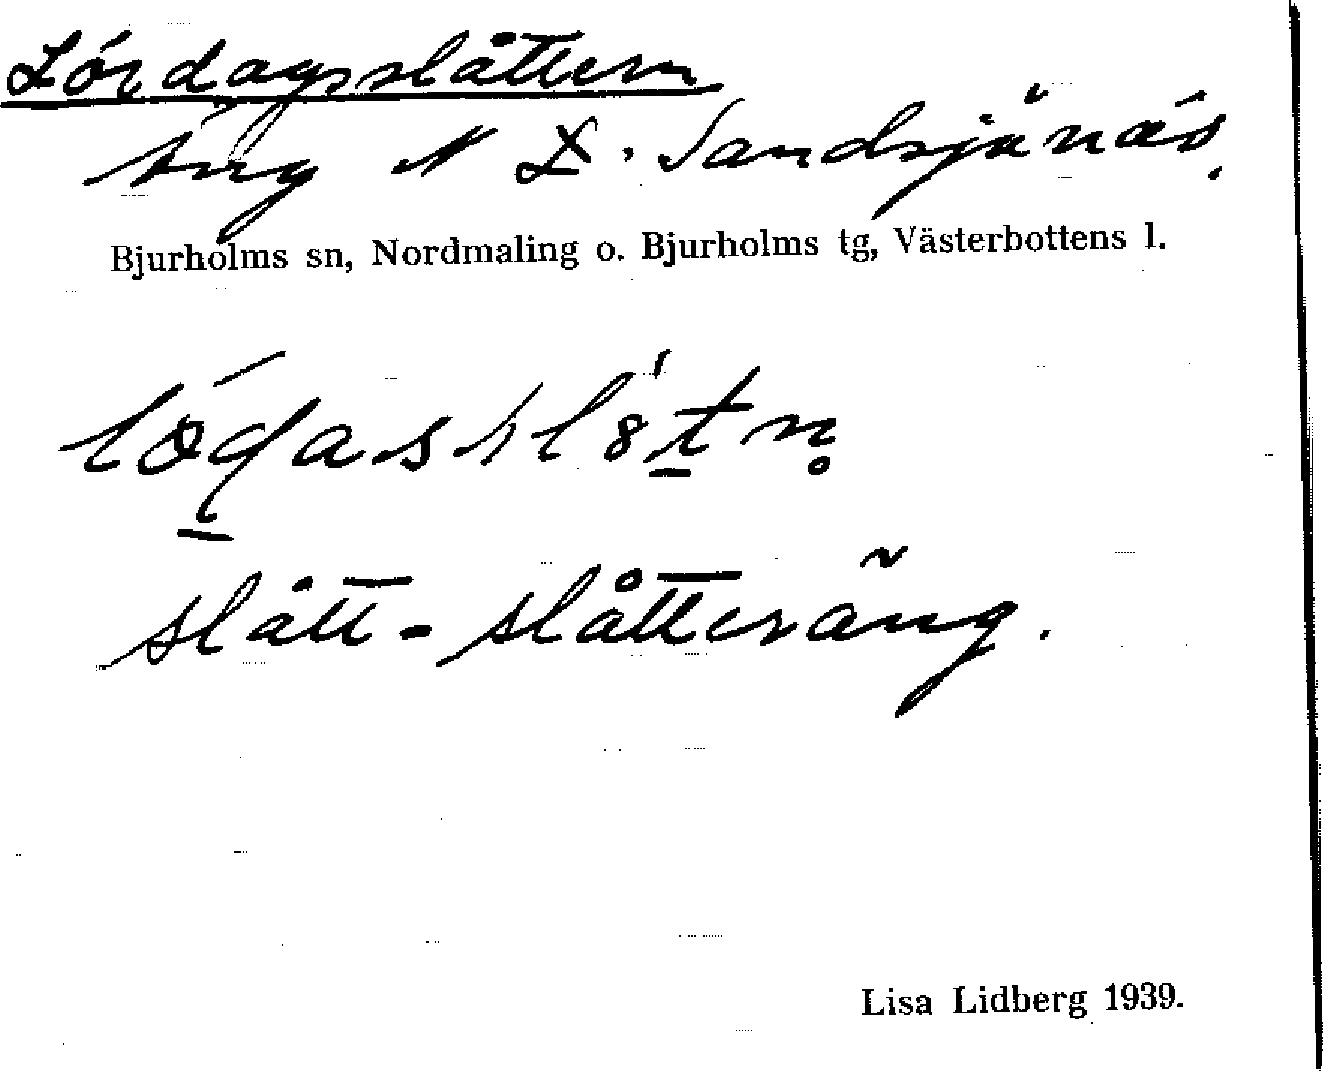 Lördagsslåttern
Äng N L. Sandsjönäs.
Bjurholms sn, Nordmaling o. Bjurholms tg, Västerbottens l.
slått = slåtteräng.
Lisa Lidberg 1939.